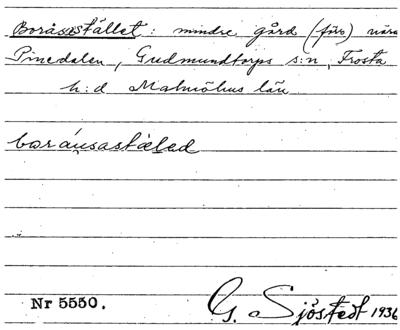 Boråsstället: mindre gård (förr) nära
Pinedalen, Gudmundtorps s:n, Frosta
h:d Malmöhus län
boráusastæled
Nr 5550.
G. Sjöstedt 1936